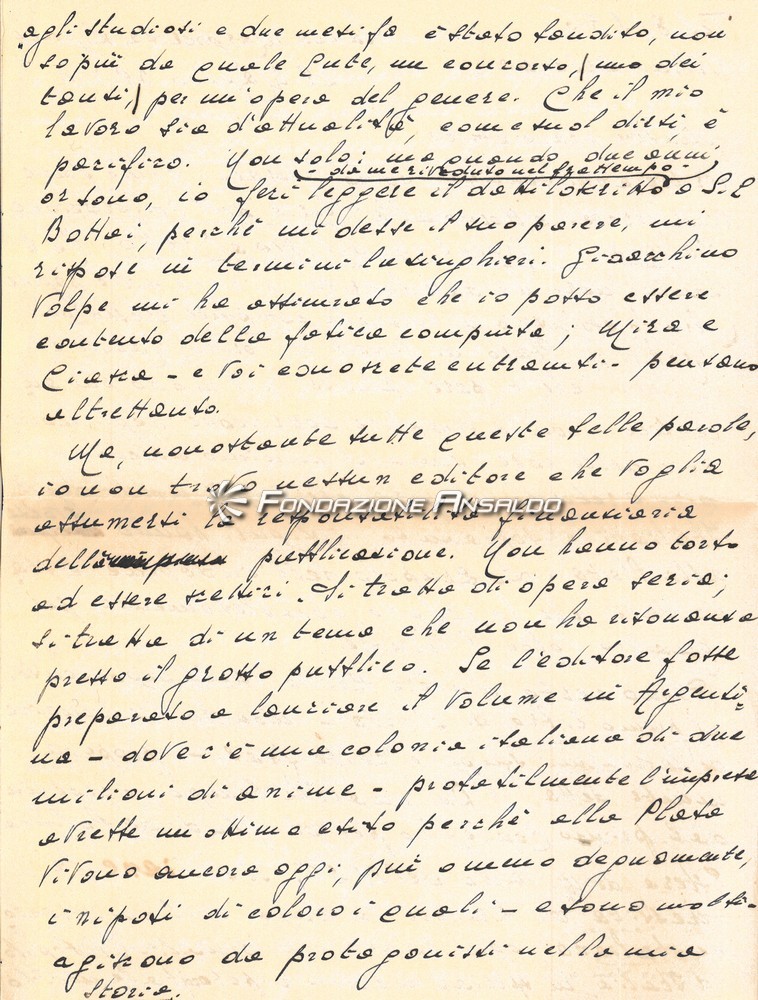 "agli studiosi e due mesi fa è stato bandito, non
so più da quale Ente, un concorso, / uno dei
tanti, / per un'opera del genere. Che il mio
lavoro sia d'attualità, come suol dirsi, è
pacifico. Non solo: ma quando, due anni
- da me riveduto nel frattempo -
or sono, io feci leggere il dattiloscritto a S.E
Bottai, perché mi desse il suo parere, mi
rispose in termini lusinghieri. Gioacchino
Volpe mi ha assicurato che io posso essere
contento della fatica compiuta; Mira e
Ciasca - e Voi conoscete entrambi - pensano
altrettanto.
Ma, nonostante tutte queste belle parole,
io non trovo nessun editore che voglia
FONDAZIONE ANSALDO
assumersi la responsabilità finanziaria
della pubblicazione. Non hanno torto
ad essere scettici. Si tratta di opera seria;
si tratta di un tema che non ha risonanza
presso il grosso pubblico. Se l'editore fosse
preparato a lanciare il volume in Argenti=
na - dove c'è una colonia italiana di due
milioni di anime - probabilmente l'impresa
avrebbe un ottimo esito perché alla Plata
vivono ancora oggi, più o meno degnamente,
i nipoti di coloro i quali - e sono molti -
agiscono da protagonisti nella mia
storia.